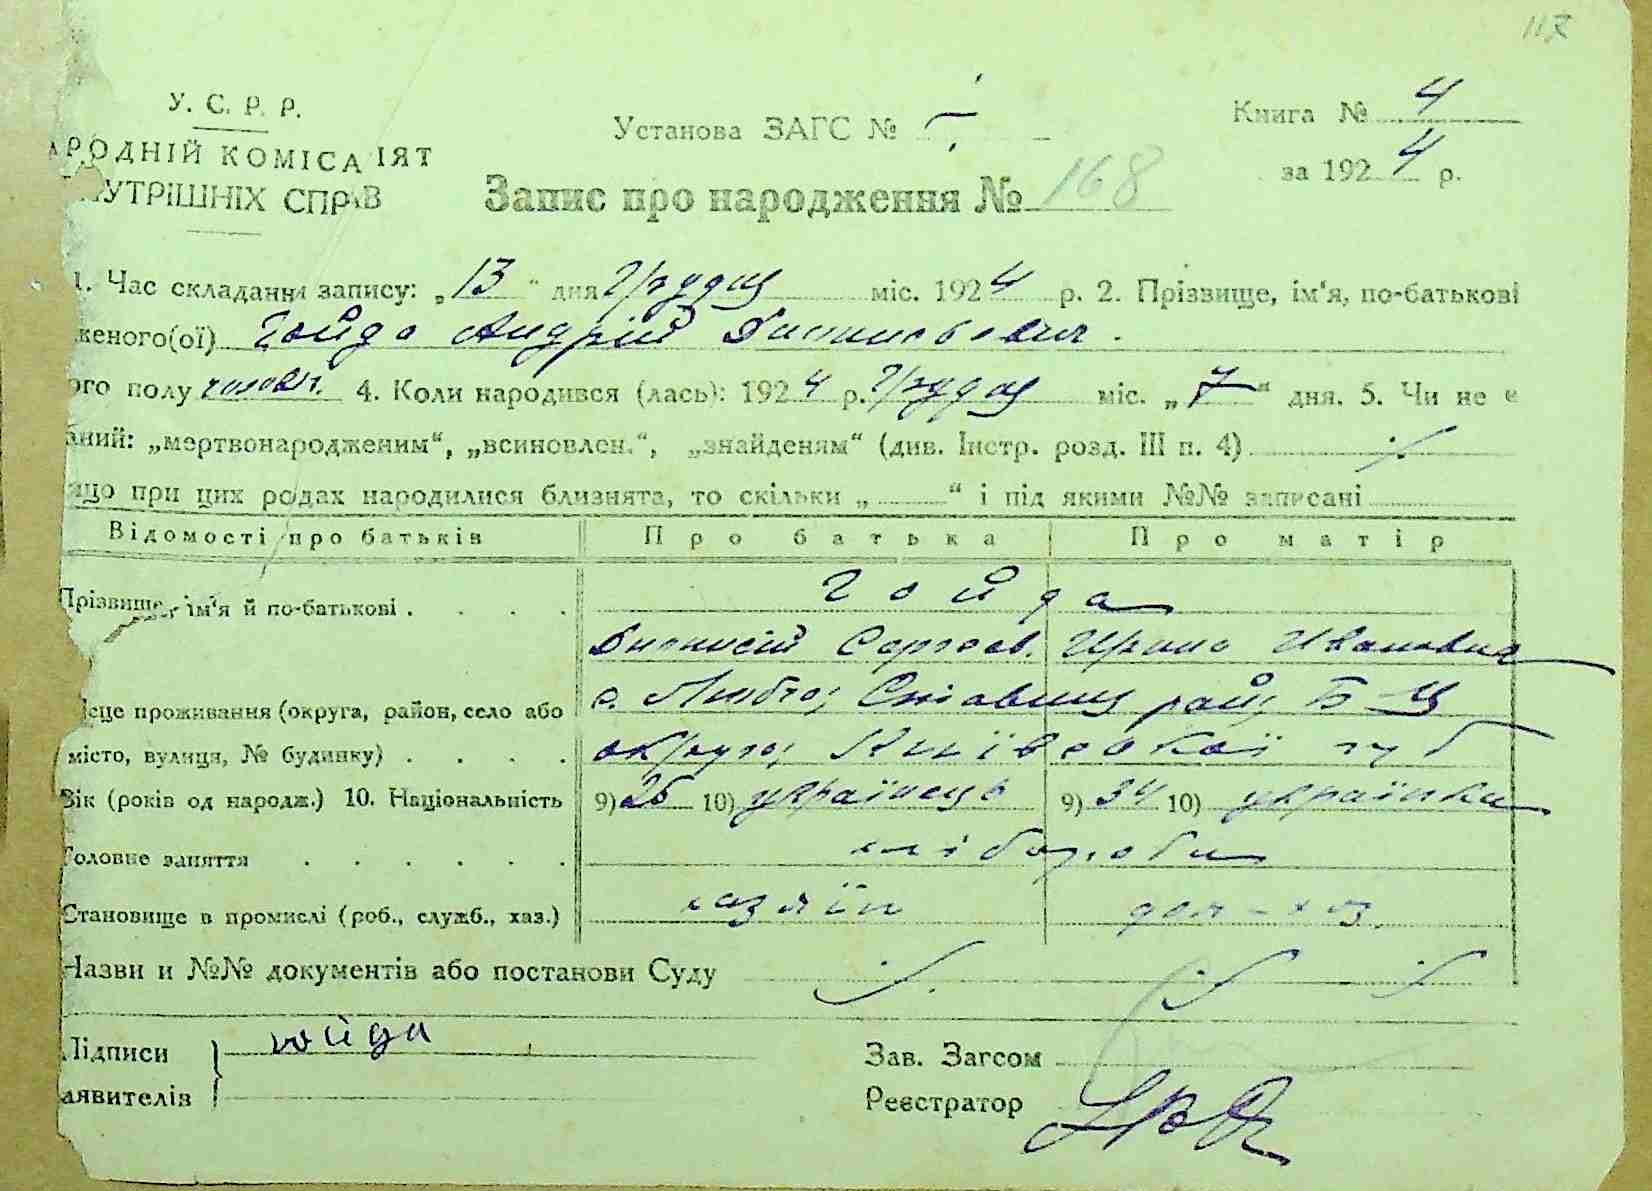 117
У. С. Р. Р.
АРОДНІЙ КОМІСАРІЯТ
НУТРІШНІХ СПРАВ
Установа ЗАГС №
Книга № 4
за 1924 р.
Запис про народження № 168
1. Час складання запису: „13“ дня Грудня міс. 1924 р. 2. Прізвище, ім'я, по-батькові
женого(ої) Гойда Андрій Дионисьевич.
ого полу чоловіч. 4. Коли народився (лась): 1924 р. Грудня міс. „7“ дня. 5. Чи не є
аний: „мертвонародженим“, „всиновлен.“, „знайденям“ (див. Інстр. розд. III п. 4)
що при цих родах народилися близнята, то скільки „ “ і під якими №№ записані
Відомості про батьків Про батька Про матір
Прізвище, ім'я й по-батькові . . . . Гойда
Дионисій Сергеев. Ирина Ивановна
ісце проживання (округа, район, село або с. Ставищ рай, Б-Ц
місто, вулиця, № будинку) . . . . округи, Київської губ
Вік (років од народж.) 10. Національність 9) 26 10) українець 9) 34 10) українка
Головне заняття . . . . . хлібороби
Становище в промислі (роб., служб., хаз.) хазяїн дом-хоз.
Назви и №№ документів або постанови Суду
Підписи гойда
аявителів
Зав. Загсом
Реєстратор